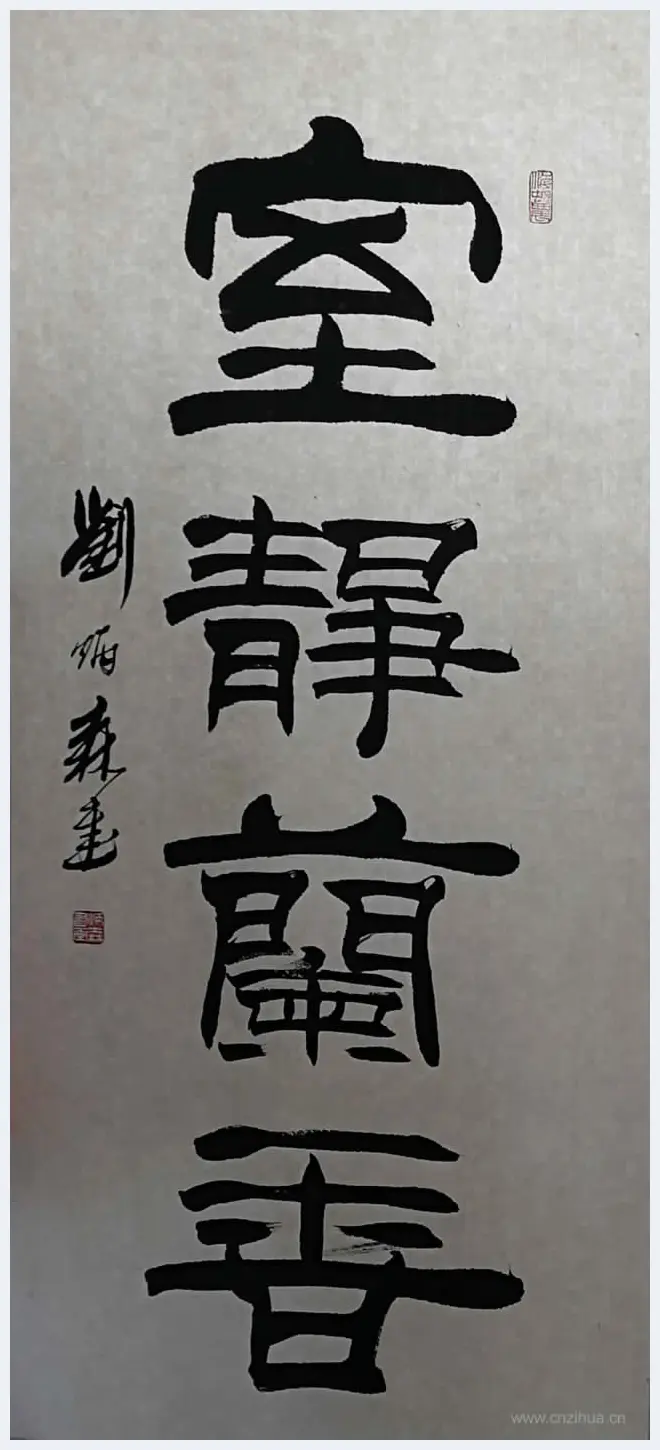 室靜蘭香
劉炳森書
www.cnzihua.cn